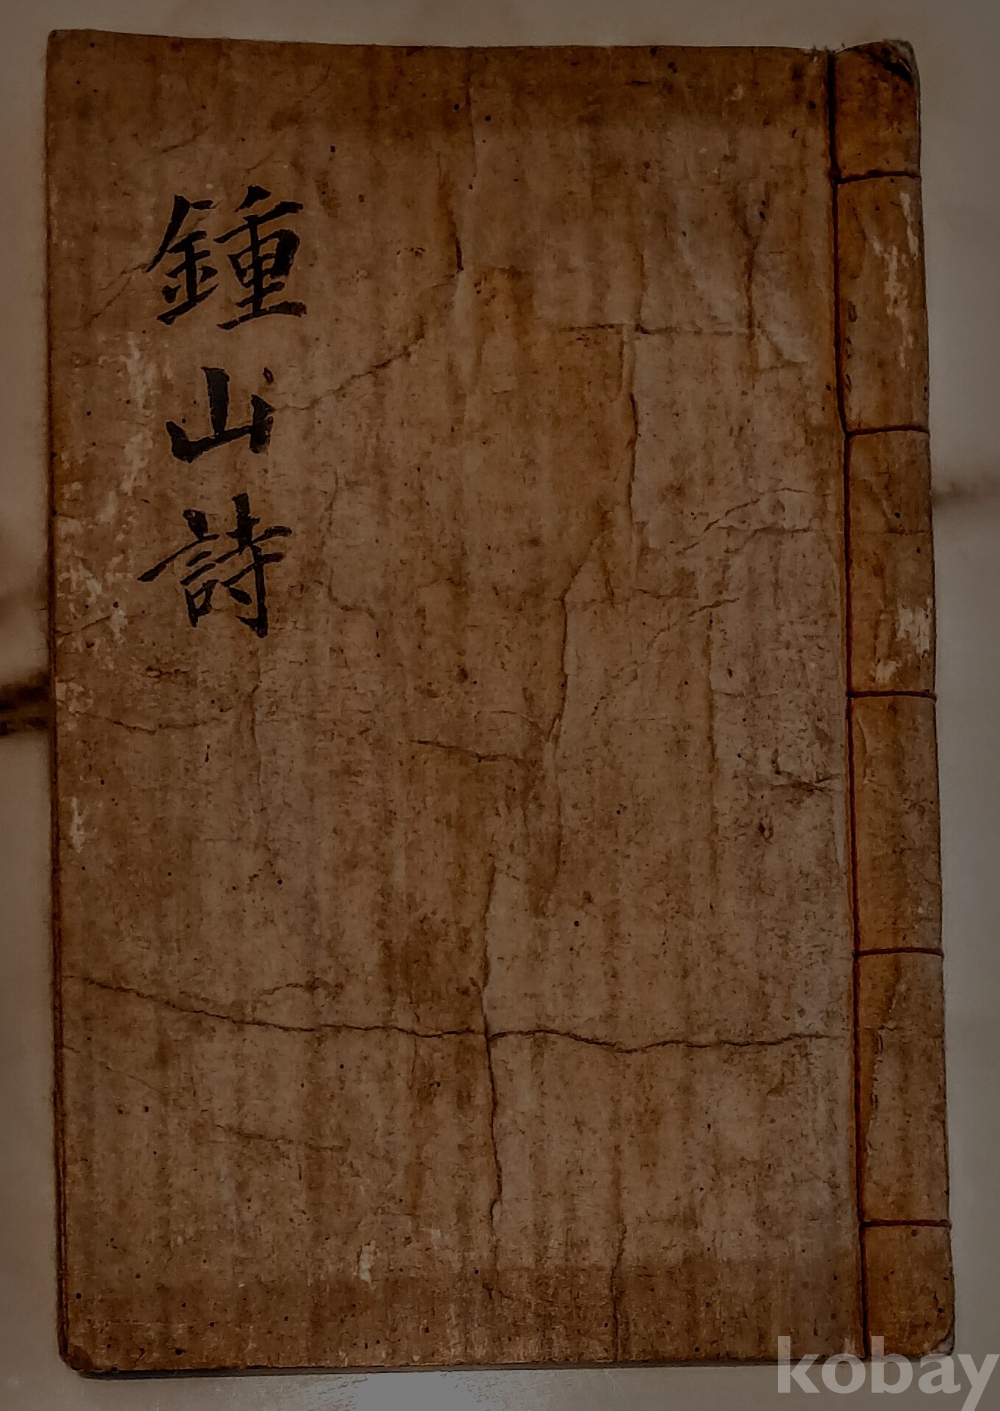 鍾山詩
kobay